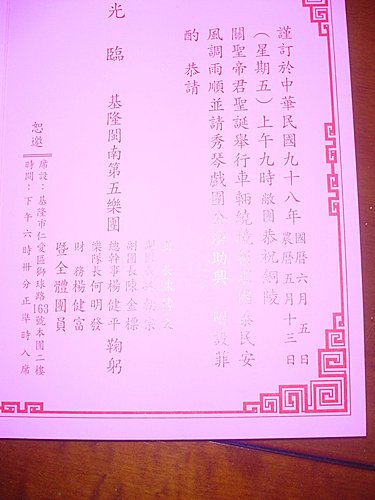 謹訂於中華民國九十八年
國曆六月五日
農曆五月十三日
（星期五）上午九時敝團恭祝銅陵
關聖帝君聖誕舉行車輛繞境
民安
風調雨順並請秀琴戲團
助興
設菲
酌 恭請
光臨
基隆閩南第五樂團
副團長陳金標
總幹事楊健平
樂隊長何明發
財務楊健富
暨全體團員
鞠躬
恕邀
席設：基隆市仁愛區獅球路163號本團二樓
時間：下午六時卅分正準時入席